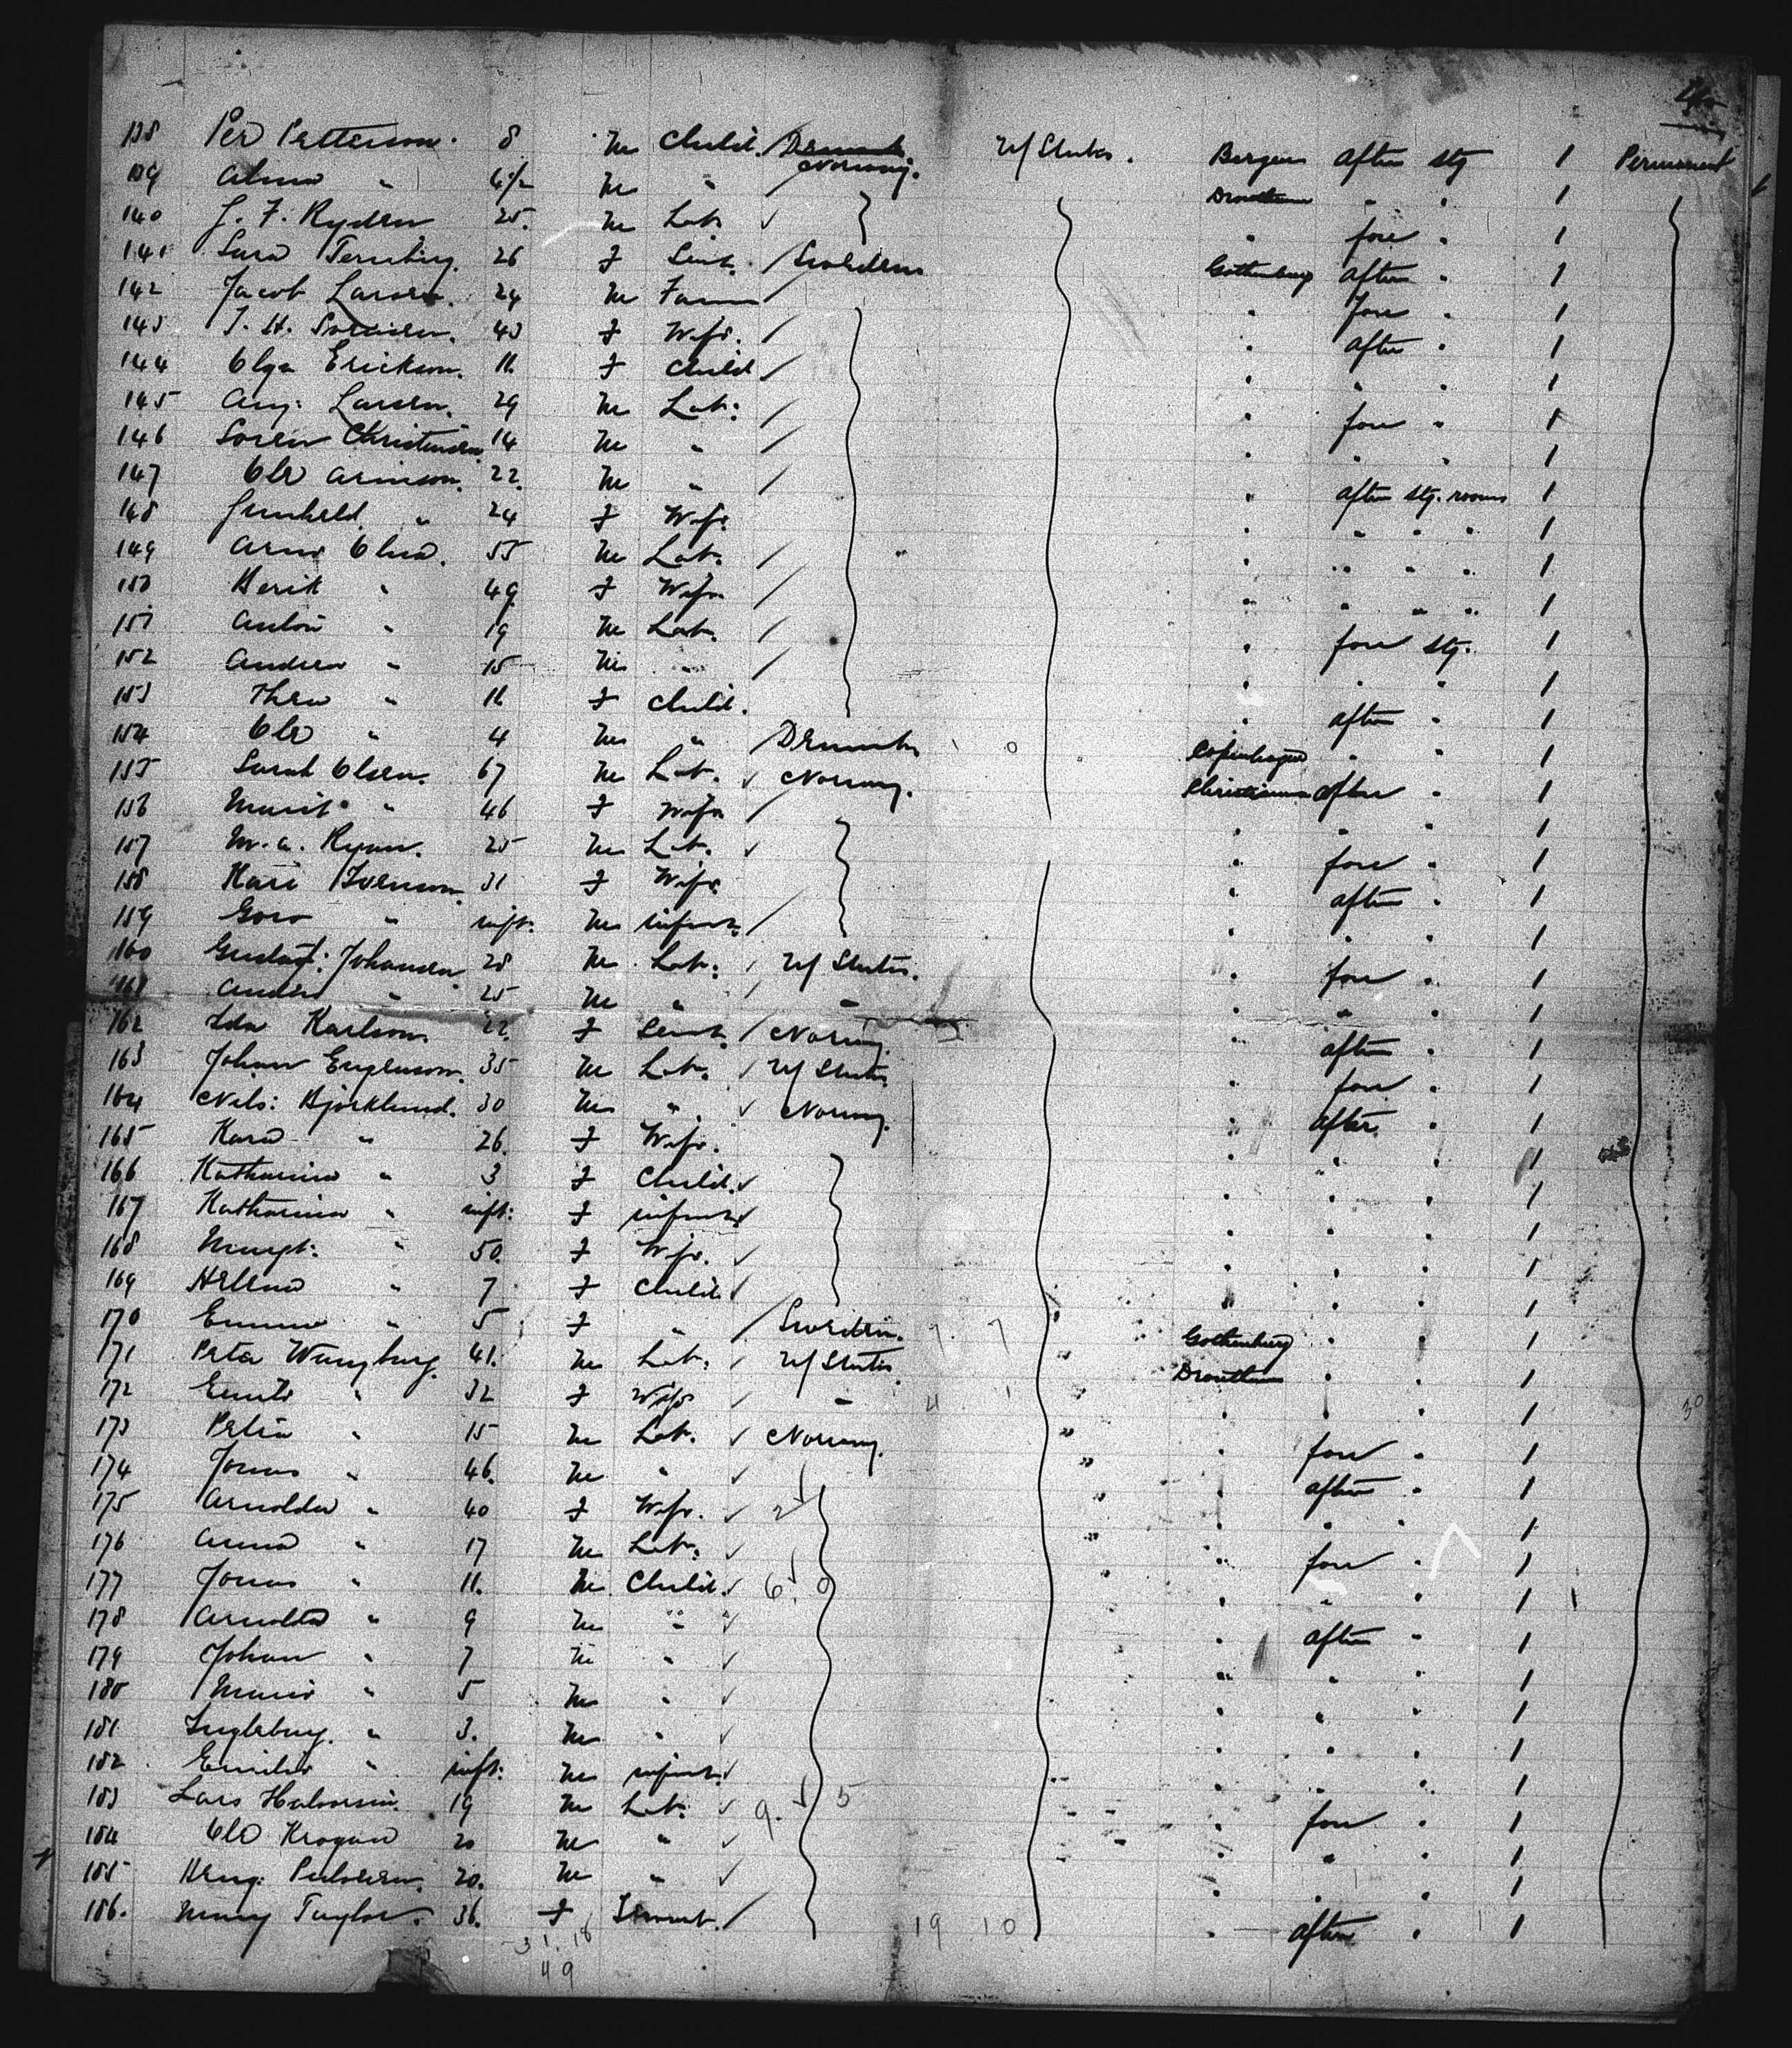 138 Per Petterson. 8 M Child. / Denmark Norway. U/States. Bergen After Stg 1 Permanent
139 Alma " 4½ M " / Drontheim " " 1
140 J. F. Ryden 25. M Lab. ✓ " fore " 1
141 Sara 26 F Sevt. / Sweden Gothenburg After " 1
142 Jacob Larsen. 24 M Farm / " Fore " 1
143 J. H. Sorensen. 43 F Wife. / " After " 1
144 Olga Erickson. 11. F Child / " " " 1
145 Aug. Larsen. 29 M Lab: / " fore " 1
146 Soren Christensen. 14 M " / " " " 1
147 Ole Arneson. 22. M " / " After Stg. rooms 1
148 Gunheld. " 24 F Wife. " " " " 1
149 Arne Olsen. 55 M Lab. / " " " " 1
150 Berit " 49. F Wife / " " " " 1
151 Anton " 19 M Lab. / " fore Stg. 1
152 Andrew " 15 M " / " " " 1
153 Thea " 11 F Child. " After " 1
154 Ole " 4 M " / Denmark 1 0 Copenhagen " " 1
155 Olsen. 67 M Lab. ✓ Norway. Christiania After " 1
156 Marit " 46 F Wife / " " " 1
157 M. A. Ryan. 25 M Lab. ✓ " fore " 1
158 Kari Iverson 31 F Wife " After " 1
159 " inft. M infant. / " " " 1
160 Gustaf: Johansen 28 M Lab: / U/States. " fore " 1
161 Anders " 25 M " / " " " " 1
162 Ida Karlson. 22. F Sevt. / Norway. " After " 1
163 Johan 35 M Lab. ✓ U/States " fore " 1
164 Nels: Bjorklund. 30 M " ✓ Norway. " After. " 1
165 Kara " 26. F Wife. " " " 1
166 Katharina " 3 F Child. ✓ " " " 1
167 Katharina " inft: F infant ✓ " " " 1
168 Margt: " 50. F Wife. ✓ " " " 1
169 Helena " 7 F Child ✓ " " " 1
170 Emma " 5 F " / Sweden. 7. 7 " Gothenburg " " 1
171 Peter 41. M Lab: ✓ U/States " Drontheim " " 1
172 " 32 F Wife ✓ " 4 1 " " " " 1 30
173 " 15 M Lab. ✓ Norway. " " fore " 1
174 Jonas " 46. M " ✓ " " After " 1
175 Arnolda " 40 F Wife. ✓ 2 " " " " 1
176 Anna " 17 M Lab: ✓ " " fore " 1
177 Jonas " 11. M Child. ✓ 6. 0 " " " 1
178 Arnolda " 9 M " ✓ " After " 1
179 Johan " 7 M " ✓ " " " 1
180 Marie " 5 M " ✓ " " " 1
181 Ingleburg. " 3. M " ✓ " " " 1
182 Emilie " inft: M infant. ✓ " " " 1
183 Lars Halvorsen. 19 M Lab. ✓ 9. 5 " fore " 1
184 Ole 20 M " ✓ " " " 1
185 20. M " ✓ " " " 1
186. Mary Taylor. 36. F Servt. / 19 10 " After " 1
31. 18
49